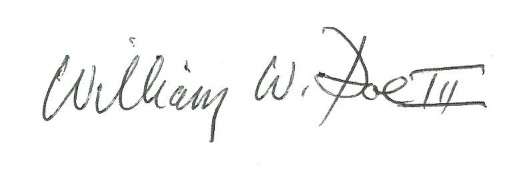 William W. Doe III